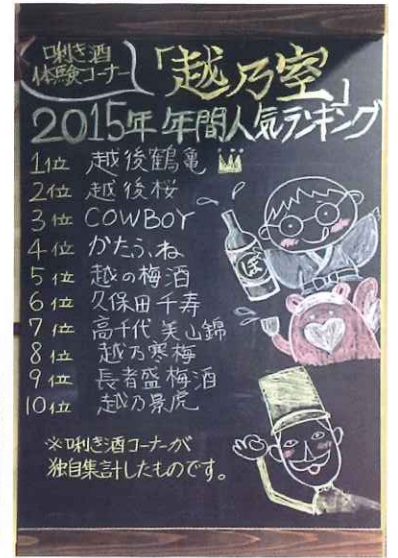 唎き酒
体験コーナー
「越乃室」
2015年 年間人気ランキング
1位 越後鶴亀
2位 越後桜
3位 COWBOY
4位 かたふね
5位 越の梅酒
6位 久保田千寿
7位 高千代 美山錦
8位 越乃寒梅
9位 長者盛梅酒
10位 越乃景虎
ぽ
※唎き酒コーナーが
独自集計したものです。